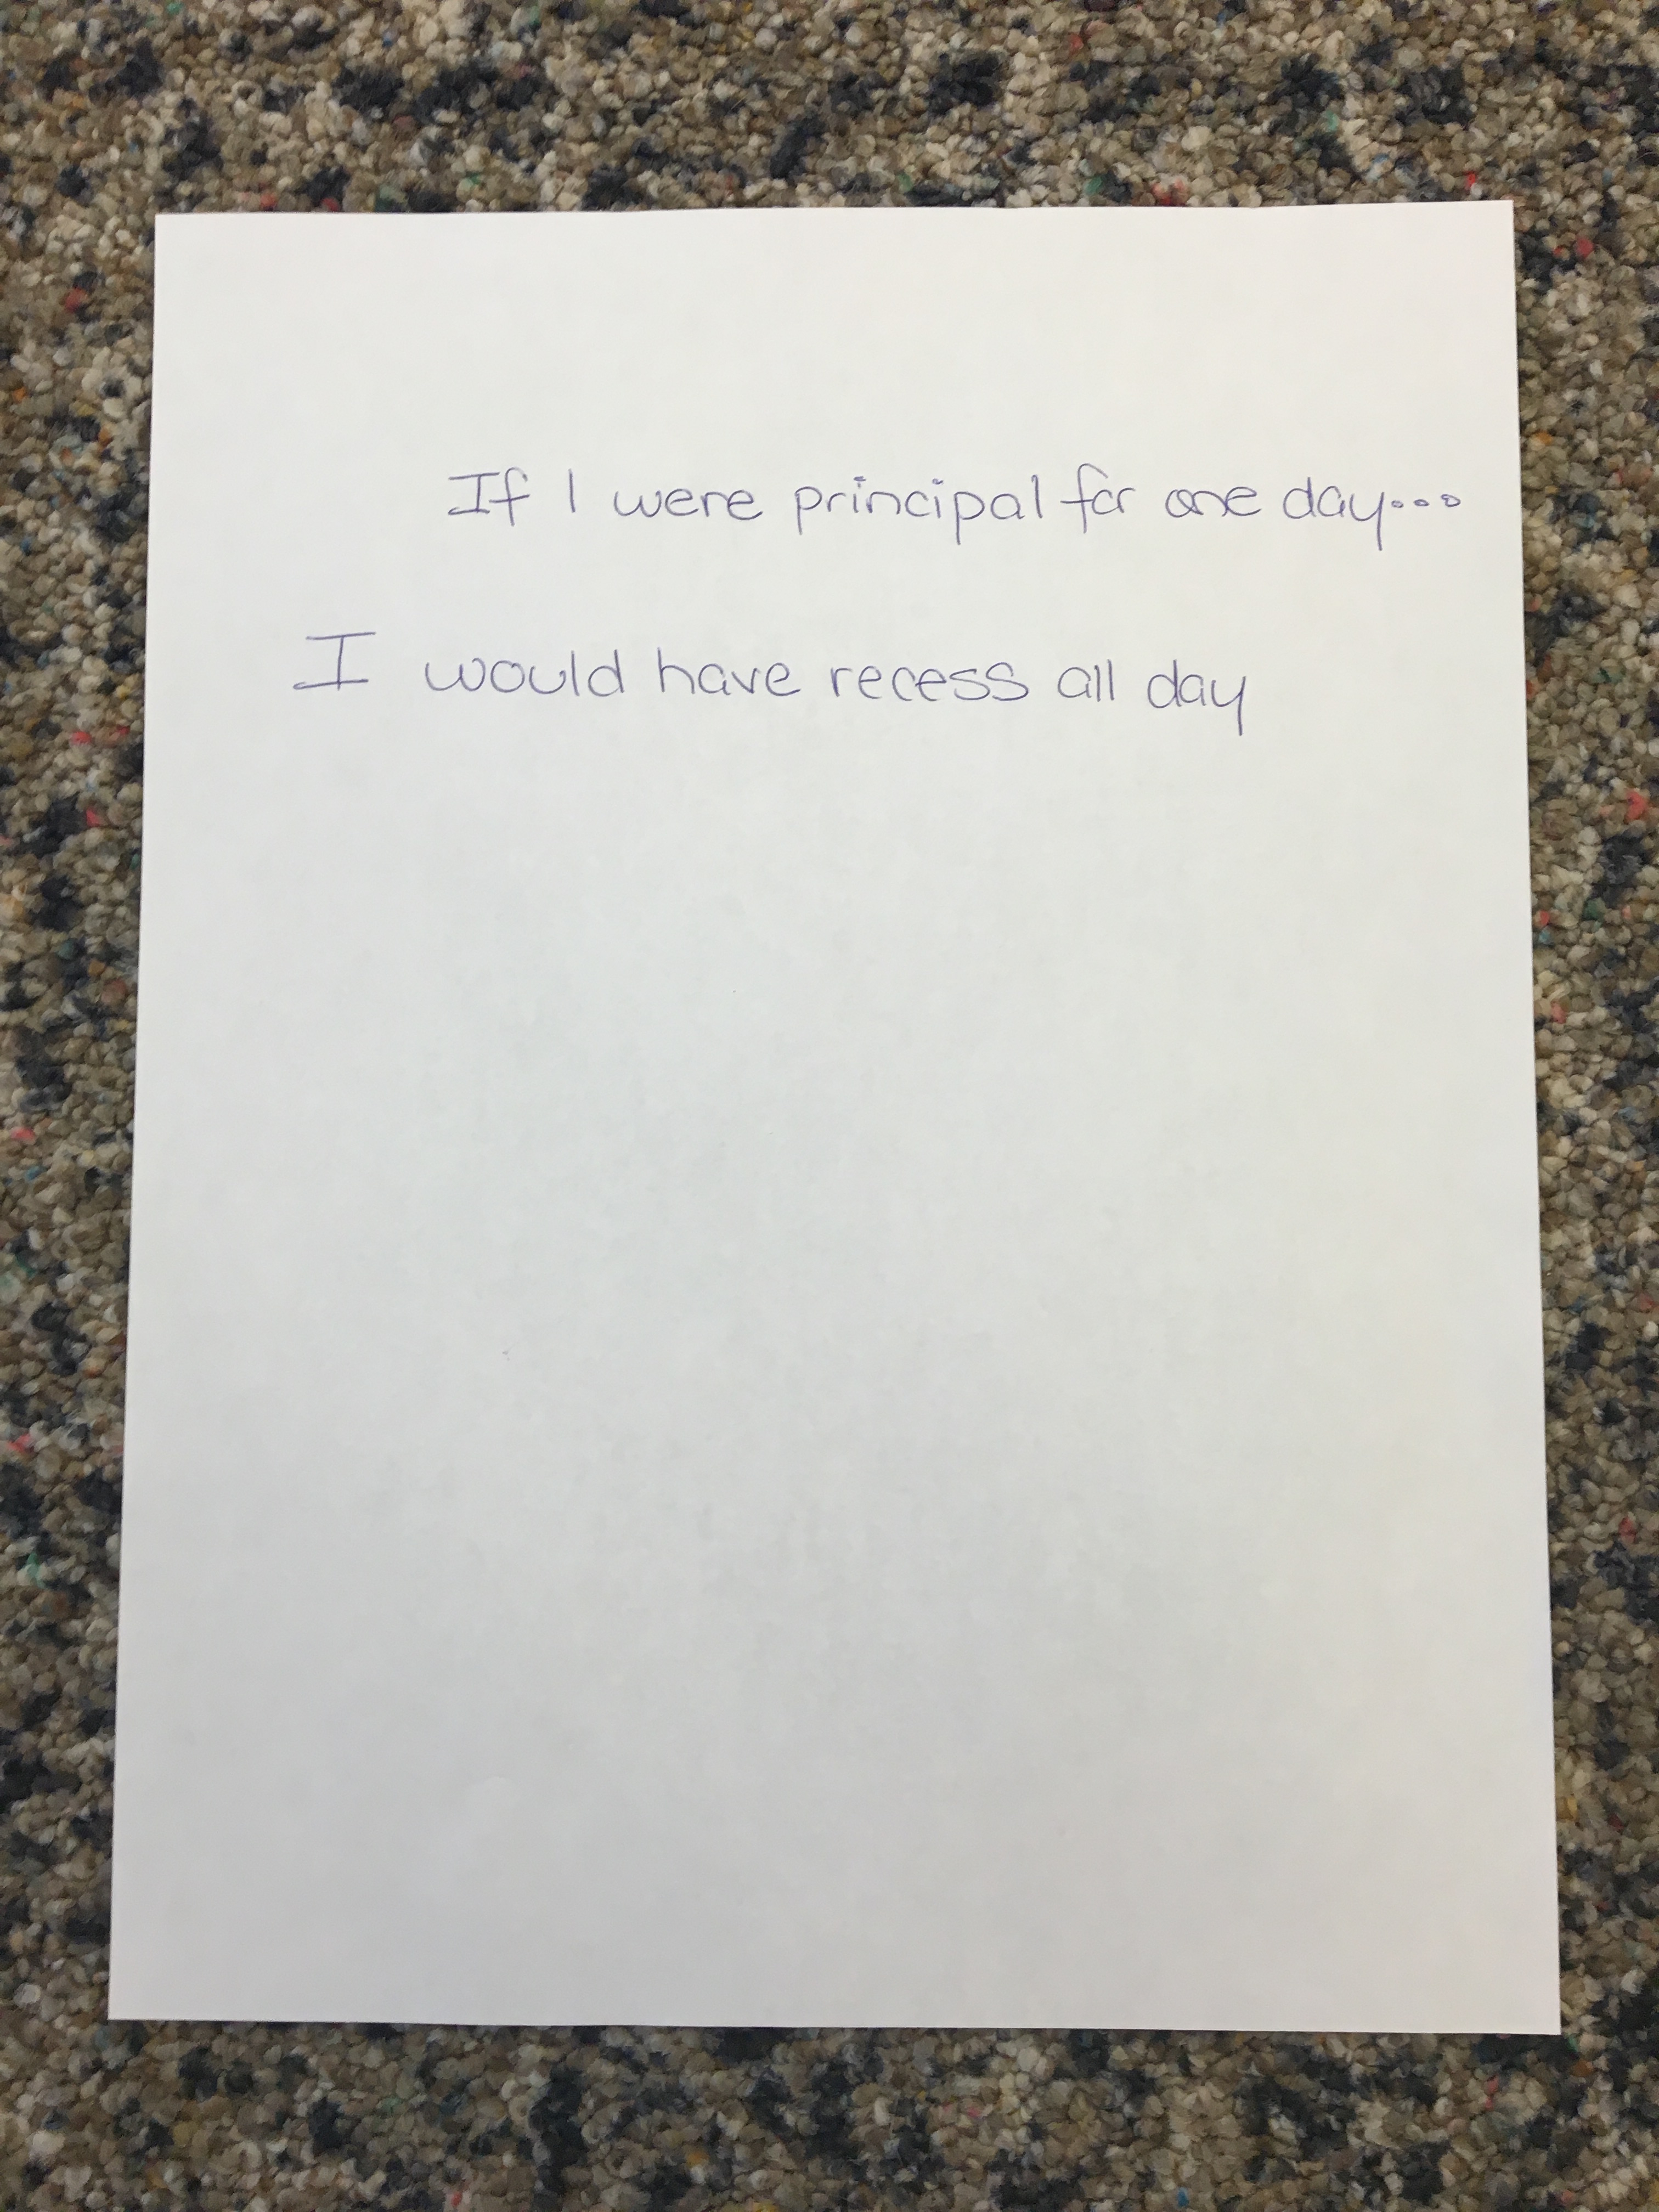 If I were principal for one day...
I would have recess all day